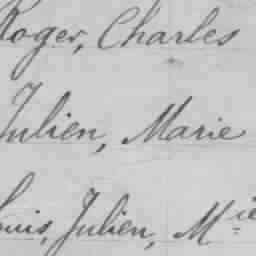 Roger, Charles
Julien, Marie
Louis, Julien, Mie